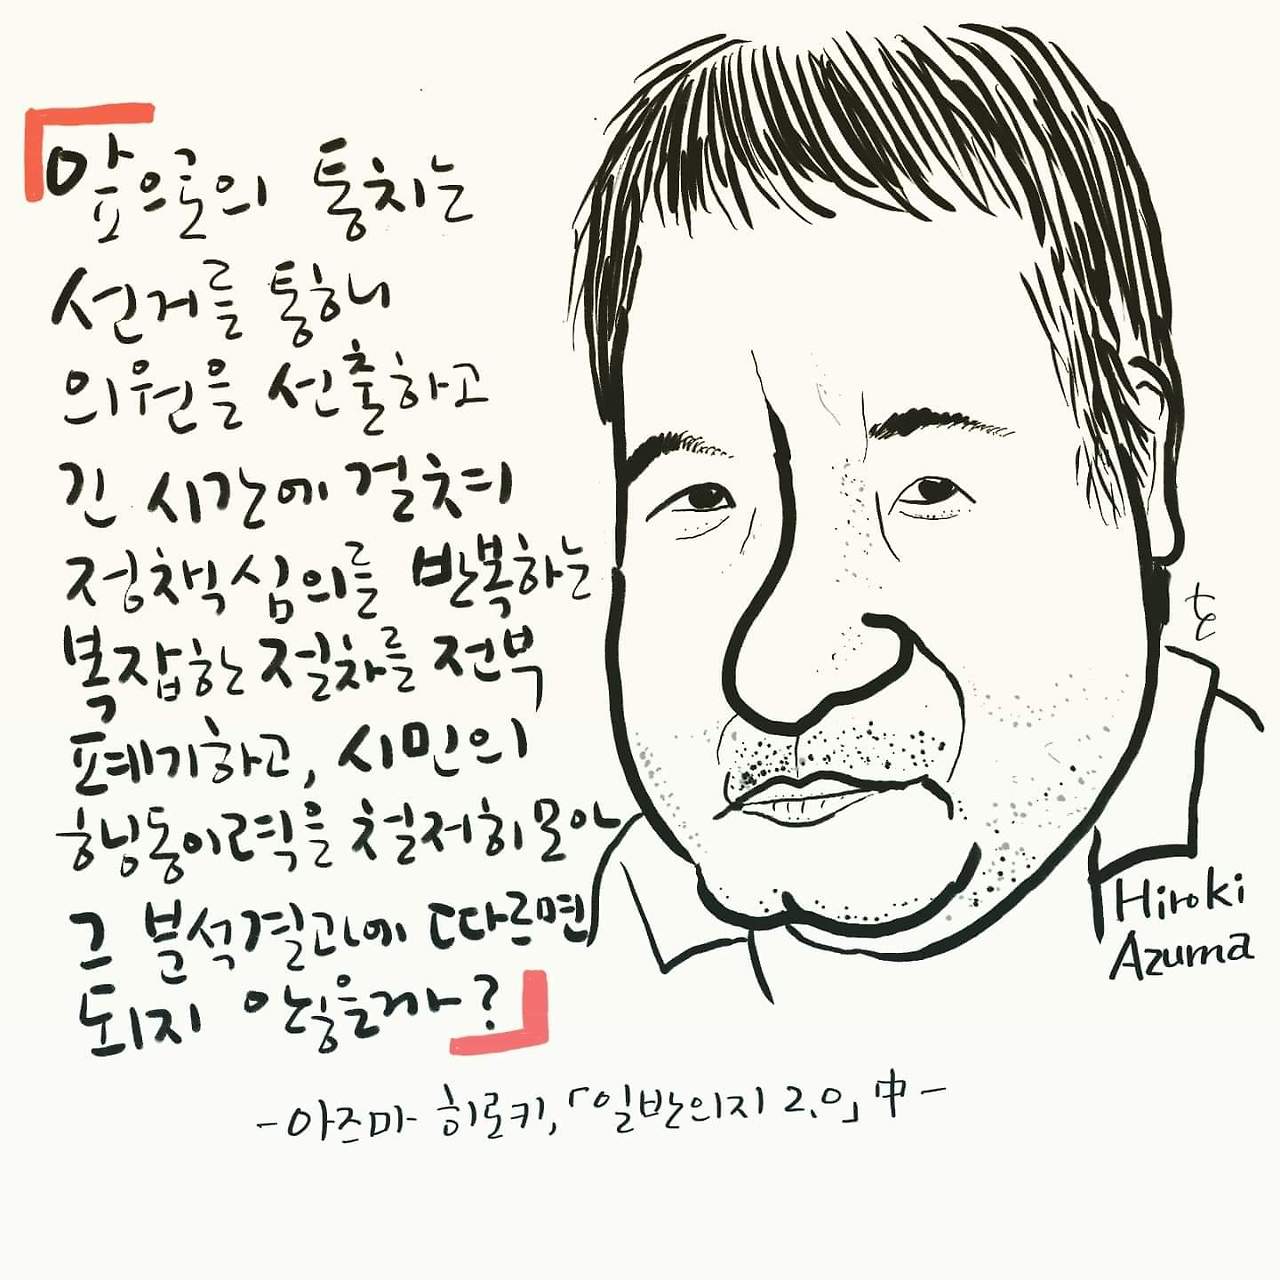 「앞으로의 통치는
선거를 통해
의원을 선출하고
긴 시간에 걸쳐
정책심의를 반복하는
복잡한 절차를 전부
폐기하고, 시민의
행동이력을 철저히 모아
그 분석결과에 따르면
되지 않을까?」
Hiroki
Azuma
-아즈마 히로키, 「일반의지 2.0」 中-